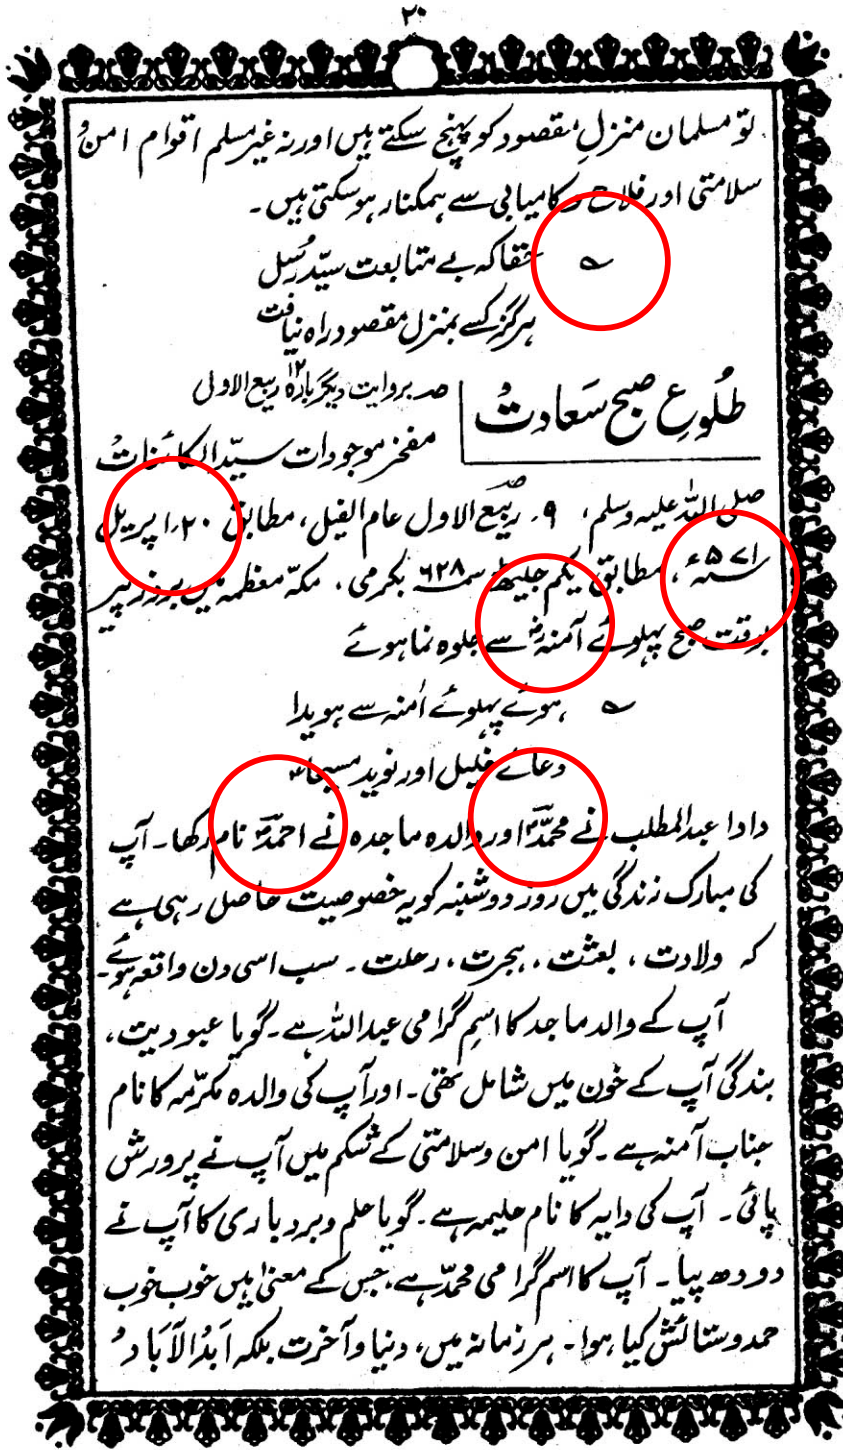 ۲۰
تو مسلمان منزلِ مقصود کو پہنچ سکتے ہیں اور نہ غیر مسلم اقوام امن و
سلامتی اور فلاح و کامیابی سے ہمکنار ہو سکتی ہیں۔
؎ حقا کہ بے متابعت سیّد رُسل
ہرگز کسے بمنزل مقصود راہ نیافت
طُلوعِ صبح سَعادت
صہ بروایت دیگر بارہ ۱۲ ربیع الاولی
مفخر موجودات سیّد الکائنات
صلی اللہ علیہ وسلم، ۹۔ ربیع الاول عام الفیل، مطابق ۲۰؍ اپریل
۵۷۱؁ء، مطابق یکم جیٹھ سمہ ۶۲۸ بکرمی، مکہ معظمہ میں بروز پیر
بوقت صبح پہلوئے آمنہؓ سے جلوہ نما ہوئے
؎ ہوئے پہلوئے اٰمنہ سے ہویدا
دعائے خلیل اور نوید مسیحاؑ
دادا عبدالمطلب نے محمدؐ اور والدہ ماجدہ نے احمدؐ نام رکھا۔ آپ
کی مبارک زندگی میں روز دوشنبہ کو یہ خصوصیت حاصل رہی ہے
کہ ولادت، بعثت، ہجرت، رحلت۔ سب اسی دن واقعہ ہوئے۔
آپ کے والد ماجد کا اسمِ گرامی عبداللہ ہے۔ گویا عبودیت،
بندگی آپ کے خون میں شامل تھی۔ اور آپ کی والدہ مکرّمہ کا نام
جناب آمنہ ہے۔ گویا امن و سلامتی کے شکم میں آپ نے پرورش
پائی۔ آپ کی دایہ کا نام حلیمہ ہے۔ گویا حلم و بردباری کا آپ نے
دودھ پیا۔ آپ کا اسم گرامی محمدّ ہے، جس کے معنیٰ ہیں خوب خوب
حمد و ستائش کیا ہوا۔ ہر زمانہ میں، دنیا و آخرت بلکہ اَبدُالآبَاد